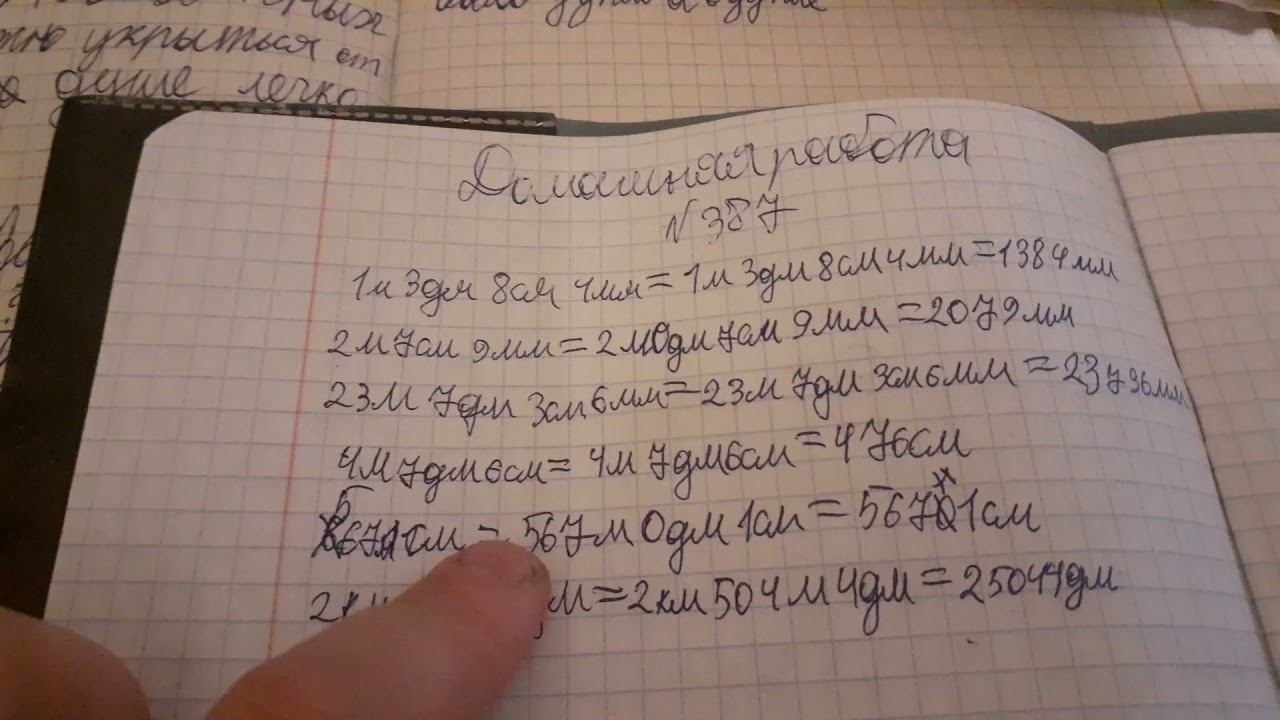 укрыться от
душе легко
Домашняя работа
№387
1м 3дм 8см 4мм = 1м 3дм 8см 4мм = 1384мм
2м 7см 9мм = 2м 0дм 7см 9мм = 2079мм
23м 7дм 3см 6мм = 23м 7дм 3см 6мм = 23736мм
4м 7дм 6см = 4м 7дм 6см = 476см
567м 1см = 567м 0дм 1см = 56701см
м = 2км 504м 4дм = 25044дм